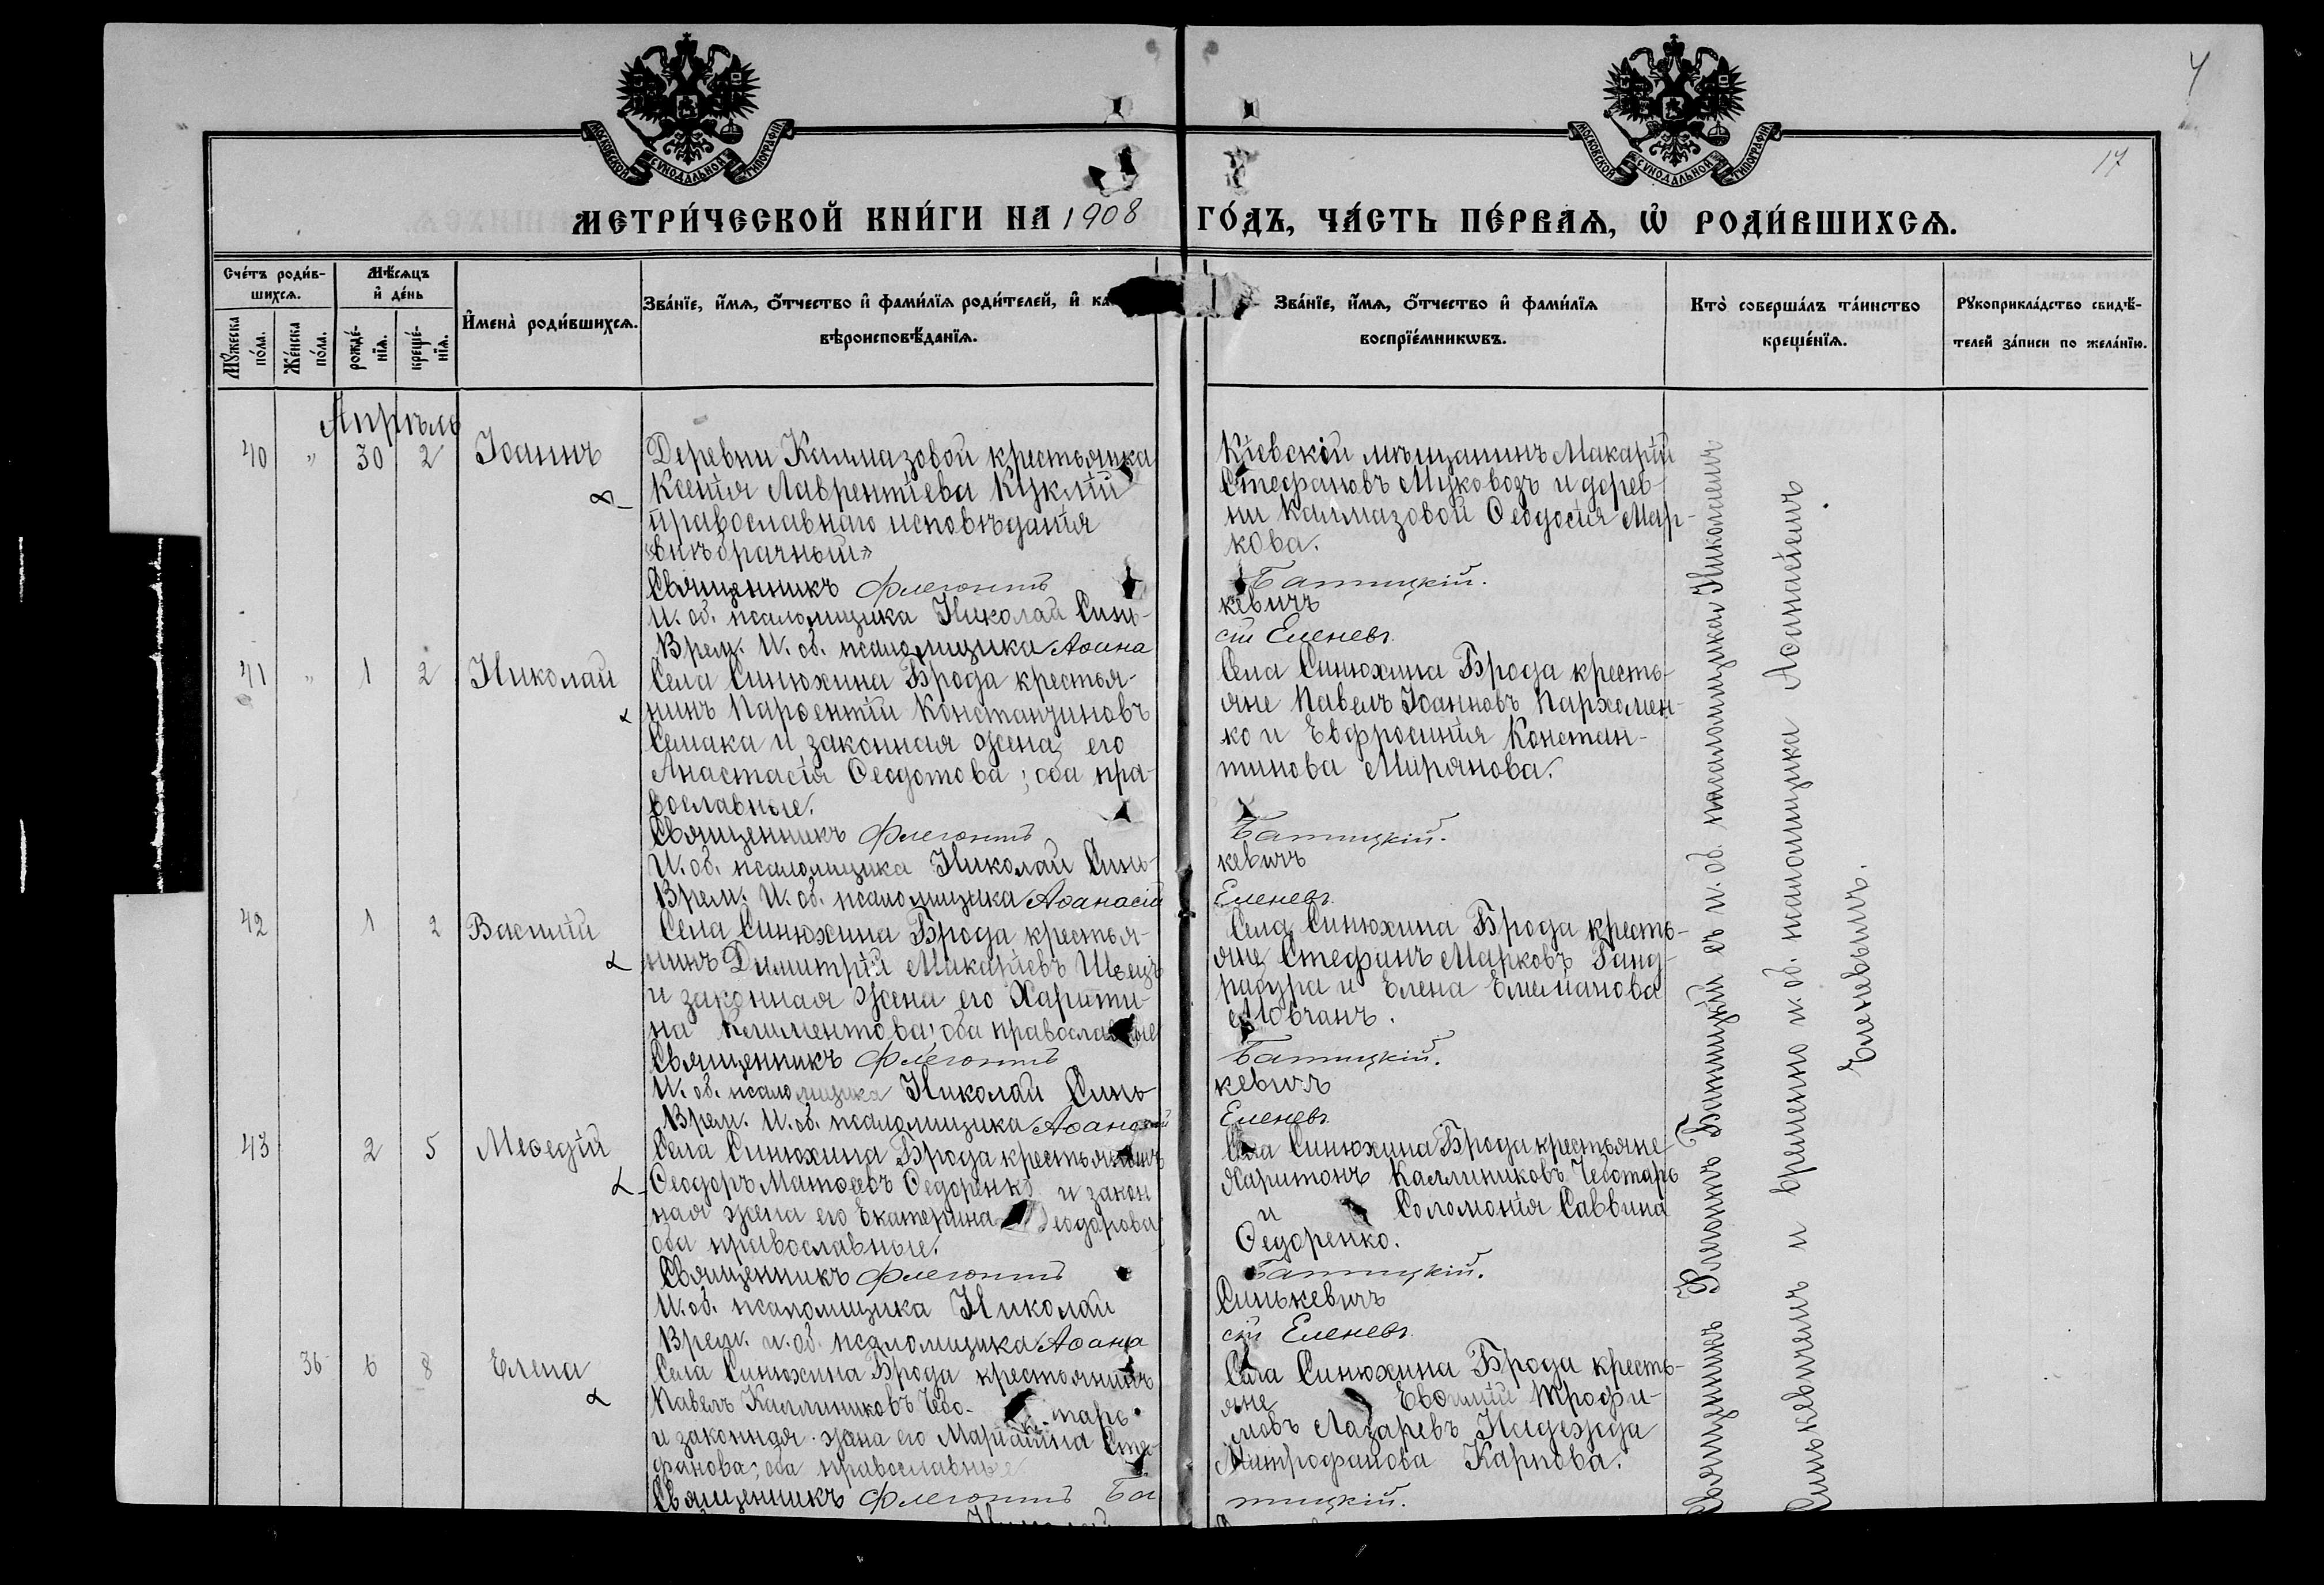 МОСКОВСКОЙ СУНОДАЛЬНОЙ ТИПОГРАФІИ
МОСКОВСКОЙ СУНОДАЛЬНОЙ ТИПОГРАФІИ
17
МЕТРИ́ЧЕСКОЙ КНИ́ГИ НА 1908 ГО́ДЪ, ЧА́СТЬ ПЕ́РВАЯ, Ѡ РОДИ́ВШИХСЯ.
Сче́тъ роди́в-
шихся.
Му́жеска
по́ла.
Же́нска
по́ла.
Мѣ́сяцъ
и де́нь
рожде́-
нїя.
креще́-
нїя.
И҆мена̀ роди́вшихся.
Зва́нїе, и҆́мя, ѻ҆́тчество и҆ фами́лїя роди́телей, и҆ ка
вѣроисповѣ́данїя.
Зва́нїе, и҆́мя, ѻ҆́тчество и҆ фами́лїя
воспрїе́мникѡвъ.
Кто̀ соверша́лъ та́инство
креще́нїя.
Рꙋкоприкла́дство свидѣ́-
телей за́писи по жела́нїю.
Апрѣль
40 " 30 2 Іоаннъ
Деревни Калмазовой крестьянка
Ксенія Лаврентіева Куклій
православнаго исповѣданія
«внѣбрачный»
Священникъ Флегонтъ
И. об. псаломщика Николай Синь-
Врем. И. об. псаломщика Аѳана
Кіевскій мѣщанинъ Макарій
Стефановъ Муковозъ и дерев-
ни Калмазовой Ѳеодосія Мар-
кова.
Батицкій.
кевичъ
сій Еленевъ
41 " 1 2 Николай
Села Синюхина Брода крестья-
нинъ Парѳентій Константиновъ
Семака и законная жена его
Анастасія Ѳеодотова; оба пра-
вославные.
Священникъ Флегонтъ
И. об. псаломщика Николай Синь-
Врем. И. об. псаломщика Аѳанасій
Села Синюхина Брода кресть-
яне Павелъ Іоанновъ Пархомен-
ко и Евфросинія Констан-
тинова Мирянова.
Батицкій.
кевичъ
Еленевъ
42 1 2 Василій
Села Синюхина Брода крестья-
нинъ Димитрій Макаріевъ Швецъ
и законная жена его Харити-
на Климентова; оба православные
Священникъ Флегонтъ
И. об. псаломщика Николай Синь
Врем. И. об. псаломщика Аѳанасій
Села Синюхина Брода кресть-
яне Стефанъ Марковъ Ганд-
рабура и Елена Емеліанова
Мовчанъ.
Батицкій.
кевичъ
Еленевъ
43 2 5 Меѳедій
Села Синюхина Брода крестьянинъ
Ѳеодоръ Матѳеевъ Ѳедоренко и закон
ная жена его Екатерина Ѳеодорова
оба православные.
Священникъ Флегонтъ
И. об. псаломщика Николай
Врем. и. об. псаломщика Аѳана
Села Синюхина Брода крестьяне
Харитонъ Каллиниковъ Чеботарь
и Соломонія Саввина
Ѳедоренко.
Батицкій.
Синькевичъ
сій Еленевъ
36 6 8 Елена
Села Синюхина Брода крестьянинъ
Павелъ Каллиниковъ Чебо-тарь
и законная жена его Маріамна Сте-
фанова; оба православные
Священникъ Флегонтъ Ба
Села Синюхина Брода кресть-
яне Евѳимій Трофи-
мовъ Лазаревъ Надежда
Митрофанова Карпова.
тицкій.
Священникъ Флегонтъ Батицкій съ и. об. псаломщика Николаемъ
Синькевичемъ и временно и. об. псаломщика Аѳанасіемъ
Еленевымъ.